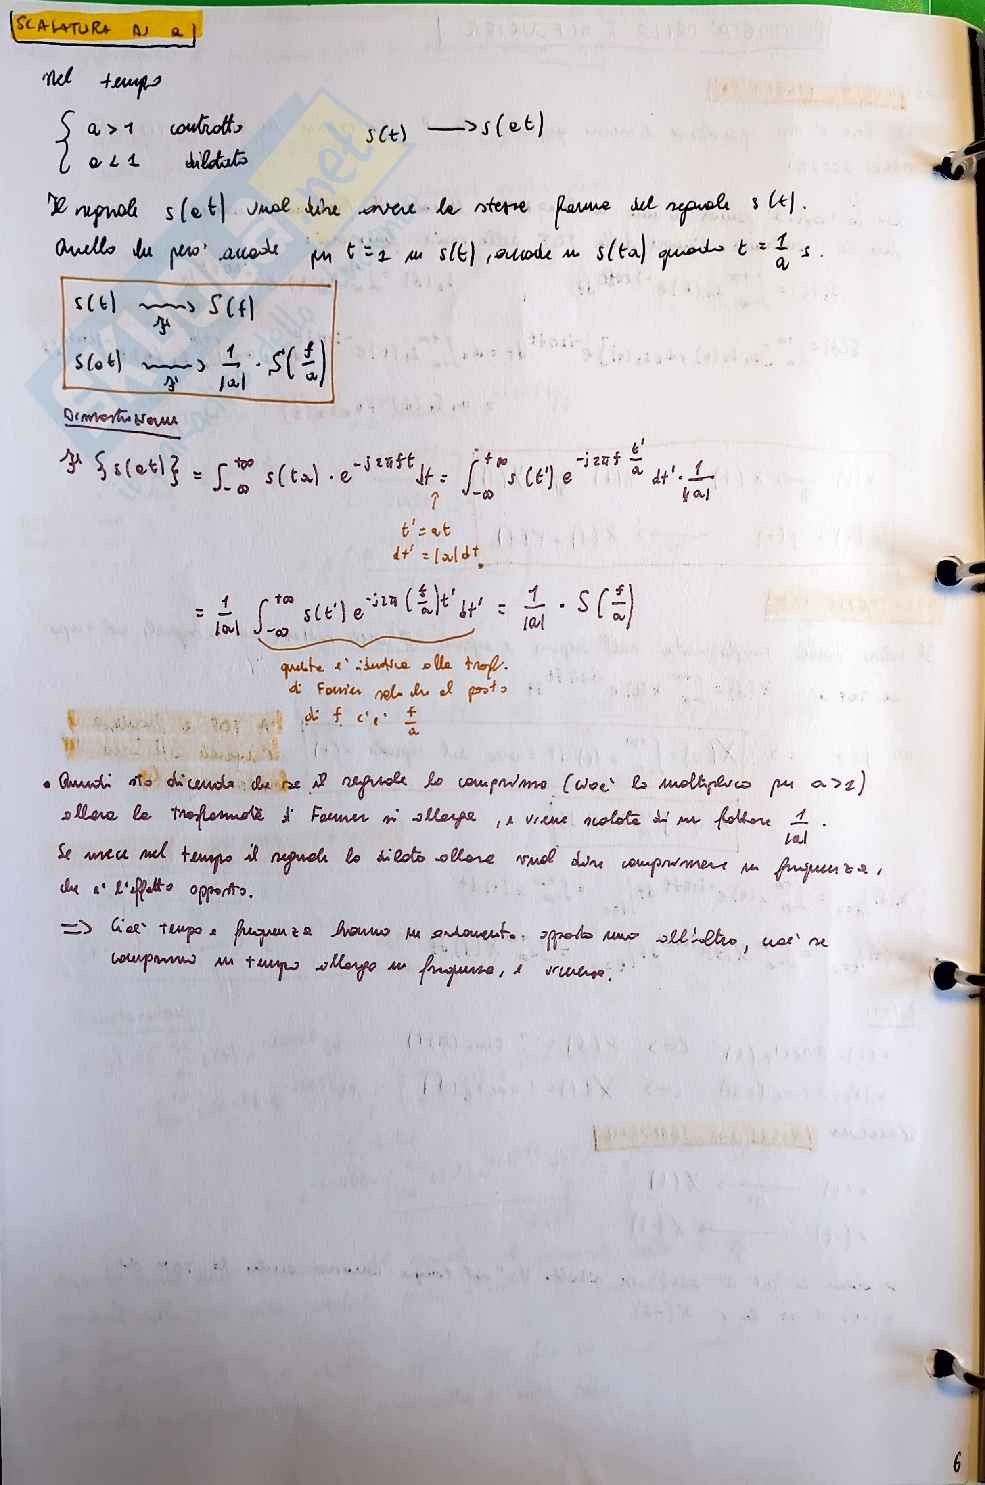 SCALATURA DI a
Nel tempo
{ a > 1 contratto s(t) → s(at)
{ a < 1 dilatato
Il segnale s(at) vuol dire avere la stessa forma del segnale s(t).
Quello che però accade per t=1 in s(t), accade in s(ta) quando t = 1/a s.
s(t) ⟿ℱ S(f)
s(at) ⟿ℱ 1/|a| · S(f/a)
Dimostrazione
ℱ {s(at)} = ∫_{-∞}^{+∞} s(ta) · e^{-j2πft} dt = ∫_{-∞}^{+∞} s(t') e^{-j2πf t'/a} dt' · 1/|a|
↑
t' = at
dt' = |a| dt
= 1/|a| ∫_{-∞}^{+∞} s(t') e^{-j2π(f/a)t'} dt' = 1/|a| · S(f/a)
questa è identica alla trasf.
di Fourier solo che al posto
di f c'è f/a
• Quindi sto dicendo che se il segnale lo comprimo (cioè lo moltiplico per a>1)
allora la trasformata di Fourier si allarga, e viene scalata di un fattore 1/|a|.
Se invece nel tempo il segnale lo dilato allora vuol dire comprimere in frequenza,
che è l'effetto opposto.
=> Cioè tempo e frequenza hanno un andamento opposto uno all'altro, cioè se
comprimo in tempo allargo in frequenza, e viceversa.
6